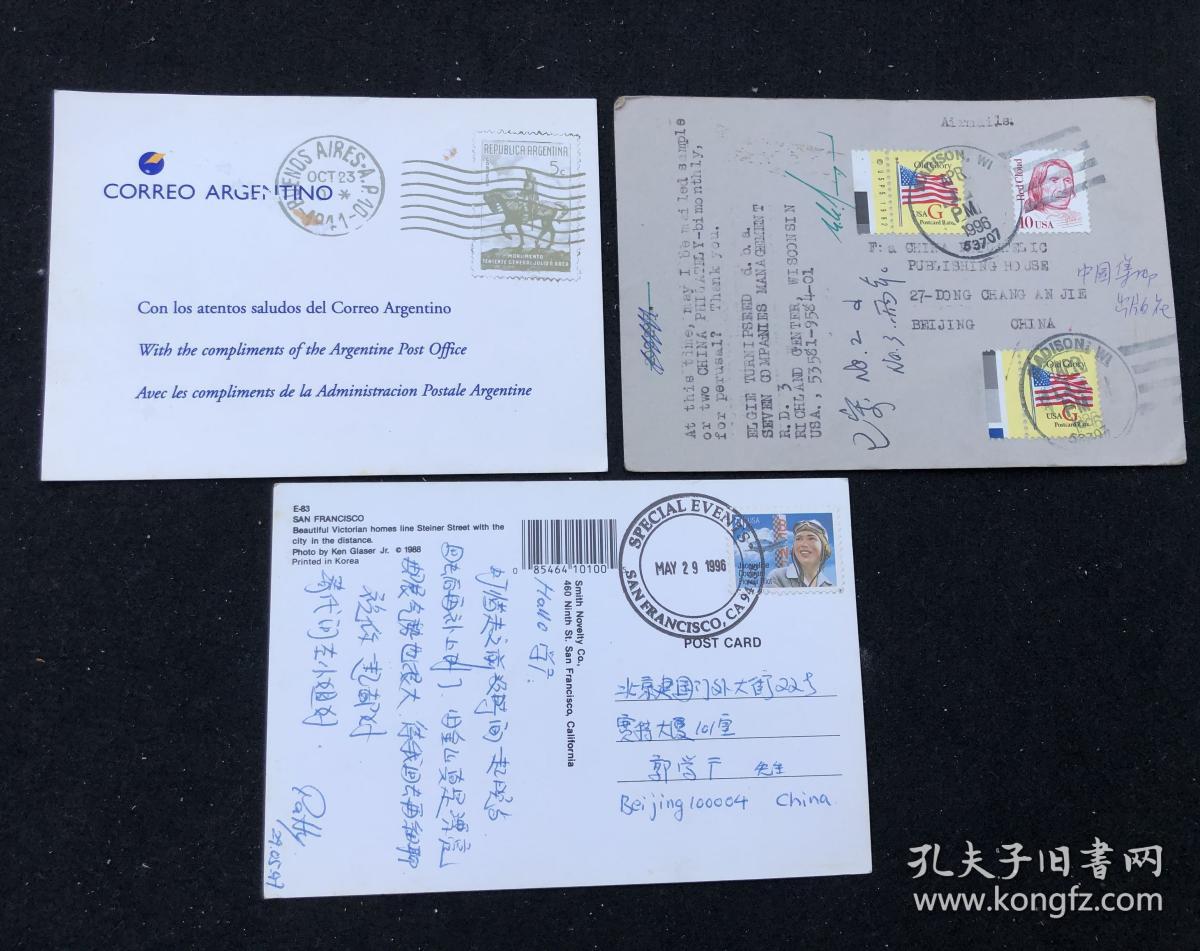 CORREO ARGENTINO
BUENOS AIRES-A.P. 10
OCT 23
1941
REPUBLICA ARGENTINA
5c
MONUMENTO
TENIENTE GENERAL JULIO A. ROCA
Con los atentos saludos del Correo Argentino
With the compliments of the Argentine Post Office
Avec les compliments de la Administracion Postale Argentine
Airmails.
At this time, may I be mailed sample
or two CHINA PHILATELY-bimonthly,
for perusal? Thank you.
ELGIE TURNIPSEED d.b.a.
SEVEN COMPANIES MANAGEMENT
R.D. 3
RICHLAND CENTER, WISCONSIN
USA., 53581-9584-01
No.2 d
No.3.
Old Glory
USA G
Postcard Rate
MADISON, WI
APR
P.M.
1996
53707
Red Cloud
10 USA
F: a CHINA
PUBLISHING HOUSE
27-DONG CHANG AN JIE
BEIJING CHINA
中國集邮
出版社
MADISON, WI
53707
Old Glory
USA G
Postcard Rate
E-83
SAN FRANCISCO
Beautiful Victorian homes line Steiner Street with the
city in the distance.
Photo by Ken Glaser Jr. © 1988
Printed in Korea
0 85464 10100
Smith Novelty Co.,
460 Ninth St. San Francisco, California
Hallo 学
可惜走之前没时间一起
回去后再补上
气势也很大.待我回去再细聊
祝你一起都好
替代问左小姐好
Patty
29.05.97
SPECIAL EVENTS
MAY 29 1996
SAN FRANCISCO, CA
USA
Jacqueline
Cochran
Pioneer Pilot
POST CARD
北京建国门外大街22号
赛特大厦101室
郭学 先生
Beijing 100004 China
孔夫子旧书网
www.kongfz.com